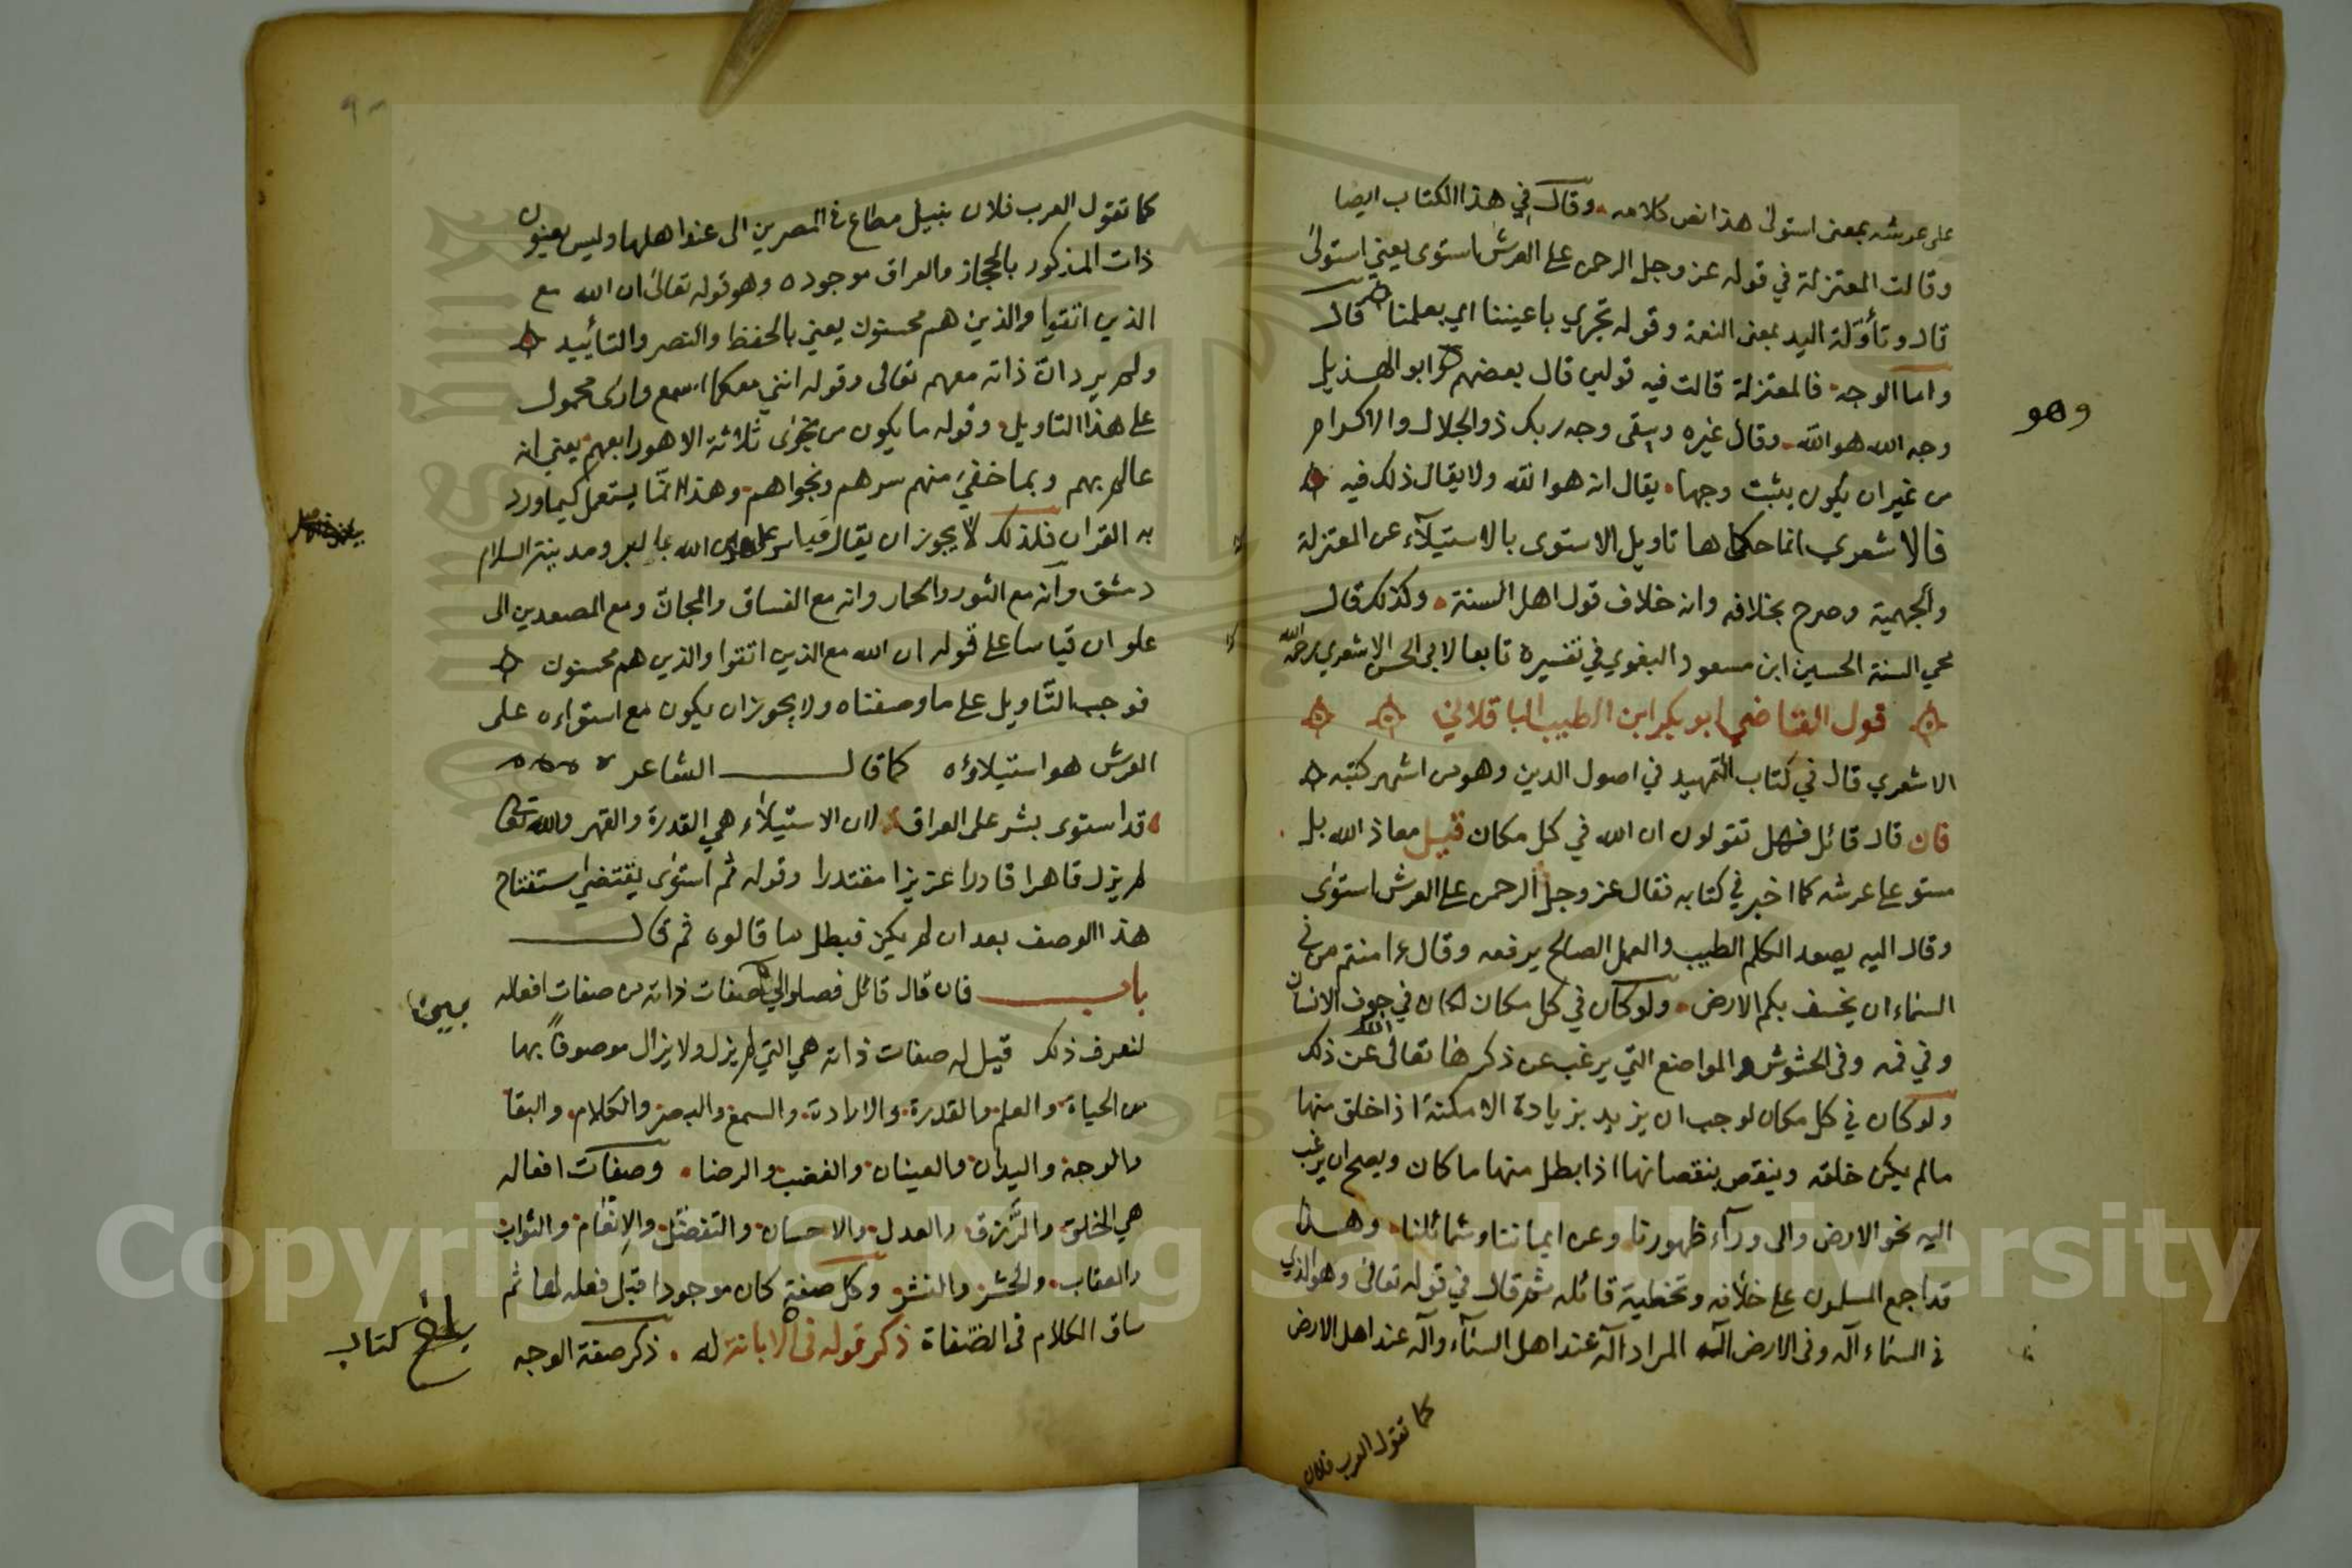 على عرشه بمعنى استولى هذا نص كلامه وقال في هذا الكتاب ايضا
وقالت المعتزلة في قوله عز وجل الرحمن على العرش استوى يعني استولى
قال وتأولة اليد بمعنى النعمة وقوله تجري باعيننا اي بعلمنا قال
واما الوجه فالمعتزلة قالت فيه قولين قال بعضهم وهو ابو الهذيل
وجه الله هو الله وقال غيره ويبقى وجه ربك ذو الجلال والاكرام
من غير ان يكون يثبت وجها يقال انه هو الله ولا يقال ذلك فيه
فالاشعري انما حكا ها تاويل الاستوى بالاستيلآء عن المعتزلة
والجهمية وصرح بخلافه وانه خلاف قول اهل السنة وكذلك قال
محي السنة الحسين ابن مسعود البغوي في تفسيره تابعا لابى الحسن الاشعري رحمه الله
قول القاضي ابو بكر ابن الطيب الباقلاني
الاشعري قال في كتاب التمهيد في اصول الدين وهو من اشهر كتبه
فان قال قائل فهل تقولون ان الله في كل مكان قيل معاذ الله بل
مستو على عرشه كما اخبر في كتابه فقال عز وجل الرحمن على العرش استوى
وقال اليه يصعد الكلم الطيب والعمل الصالح يرفعه وقال ءامنتم من في
السماء ان يخسف بكم الارض ولو كان في كل مكان لكان في جوف الانسان
وفي فمه وفى الحشوش والمواضع التي يرغب عن ذكرها تعالى الله عن ذلك
ولو كان في كل مكان لوجب ان يزيد بزيادة الامكنة اذا خلق منها
مالم يكن خلقه وينقص بنقصانها اذا بطل منها ما كان ويصح ان يرغب
اليه نحو الارض والى ورآء ظهورنا وعن ايماننا وشمائلنا وهذا
قد اجمع المسلمون على خلافه وتخطية قائله ثم قال في قوله تعالى وهو الذي
في السماء آله وفى الارض آله المراد آله عند اهل السمآء وآله عند اهل الارض
كما تقول العرب فلان
وهو
كما تقول العرب فلان نبيل مطاع في المصرين الى عند اهلها وليس يعنون
ذات المذكور بالحجاز والعراق موجوده وهو قوله تعالى ان الله مع
الذين اتقوا والذين هم محسنون يعني بالحفظ والنصر والتأييد
ولم يرد ان ذاته معهم تعالى وقوله انني معكما اسمع وارى محمول
على هذا التاويل وقوله ما يكون من نجوى ثلاثة الا هو رابعهم يعني انه
عالم بهم وبما خفي منهم سرهم ونجواهم وهذا انما يستعمل كما ورد
به القران فلذلك لا يجوز ان يقال قياسا على هذا ان الله ومدينة السلام
دمشق وانه مع الثور والحمار وانه مع الفساق والمجان ومع المصعدين الى
علوان قياسا على قوله ان الله مع الذين اتقوا والذين هم محسنون
فوجب التاويل على ما وصفناه ولا يجوز ان يكون مع استواءه على
العرش هو استيلاؤه كما قال الشاعر
قد استوى بشر على العراق لان الاستيلاء هي القدرة والقهر والله تعا
لم يزل قاهرا قادرا عزيزا مقتدرا وقوله ثم استوى يقتضي استفتاح
هذا الوصف بعد ان لم يكن فبطل ما قالوه ثم قال
باب فان قال قائل فصلوا لي صفات ذاته من صفات افعاله
لنعرف ذلك قيل له صفات ذاته هي التي لم يزل ولا يزال موصوفا بها
من الحياة والعلم والقدرة والارادة والسمع والبصر والكلام والبقا
والوجه واليدان والعينان والغضب والرضا وصفات افعاله
هي الخلق والرزق والعدل والاحسان والتفضل والانعام والثواب
والعقاب والحشر والنشر وكل صفة كان موجودا قبل فعله لها ثم
ساق الكلام فى الصفاة ذكر قوله فى الابانة له ذكر صفة الوجه
كتاب